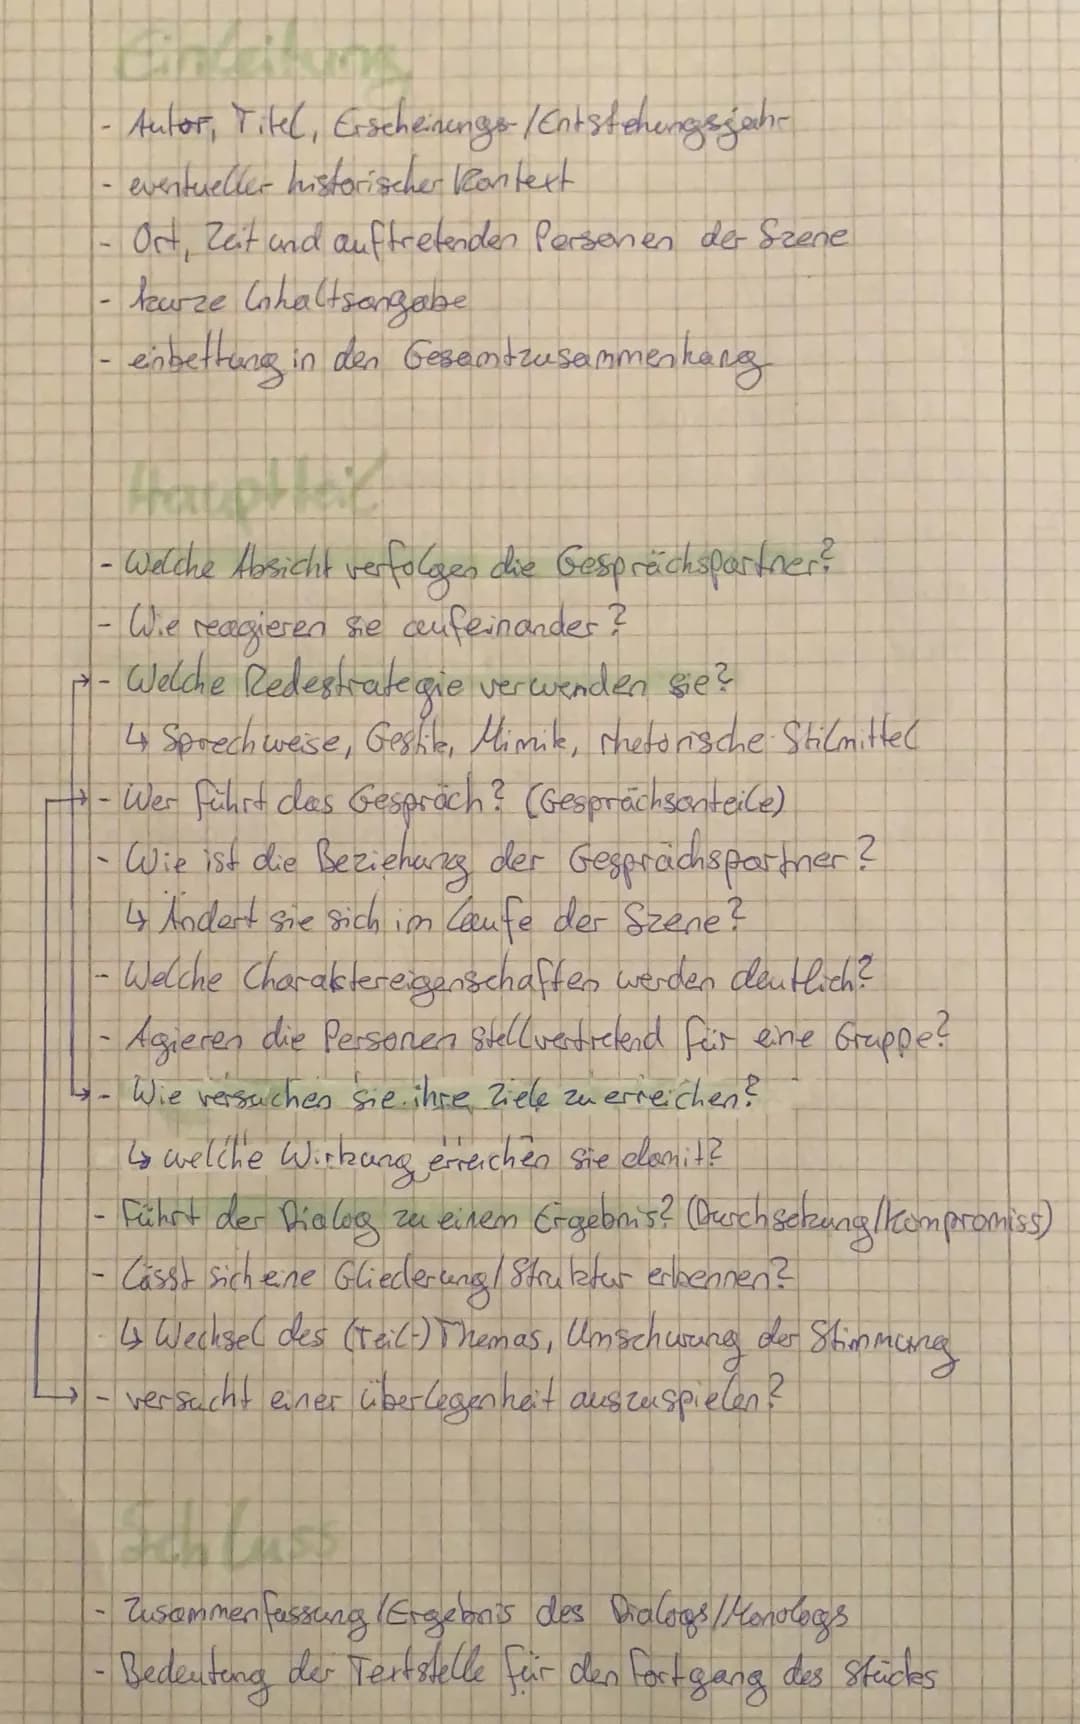 Einleitung
- Autor, Titel, Erscheinungs-/Entstehungsjahr
- eventueller historischer Kontext
- Ort, Zeit und auftretenden Personen der Szene
- kurze Inhaltsangabe
- einbettung in den Gesamtzusammenhang
Hauptteil
- Welche Absicht verfolgen die Gesprächspartner?
- Wie reagieren sie aufeinander?
- Welche Redestrategie verwenden sie?
↳ Sprechweise, Gestik, Mimik, rhetorische Stilmittel
- Wer führt das Gespräch? (Gesprächsanteile)
- Wie ist die Beziehung der Gesprächspartner?
↳ Ändert sie sich im Laufe der Szene?
- Welche Charaktereigenschaften werden deutlich?
- Agieren die Personen stellvertretend für eine Gruppe?
- Wie versuchen sie ihre Ziele zu erreichen?
↳ welche Wirkung erreichen sie damit?
- Führt der Dialog zu einem Ergebnis? (Durchsetzung/Kompromiss)
- Lässt sich eine Gliederung/Struktur erkennen?
↳ Wechsel des (Teil-)Themas, Umschwung der Stimmung
- versucht einer überlegenheit auszuspielen?
Schluss
- Zusammenfassung/Ergebnis des Dialogs/Monologs
- Bedeutung der Textstelle für den Fortgang des Stückes